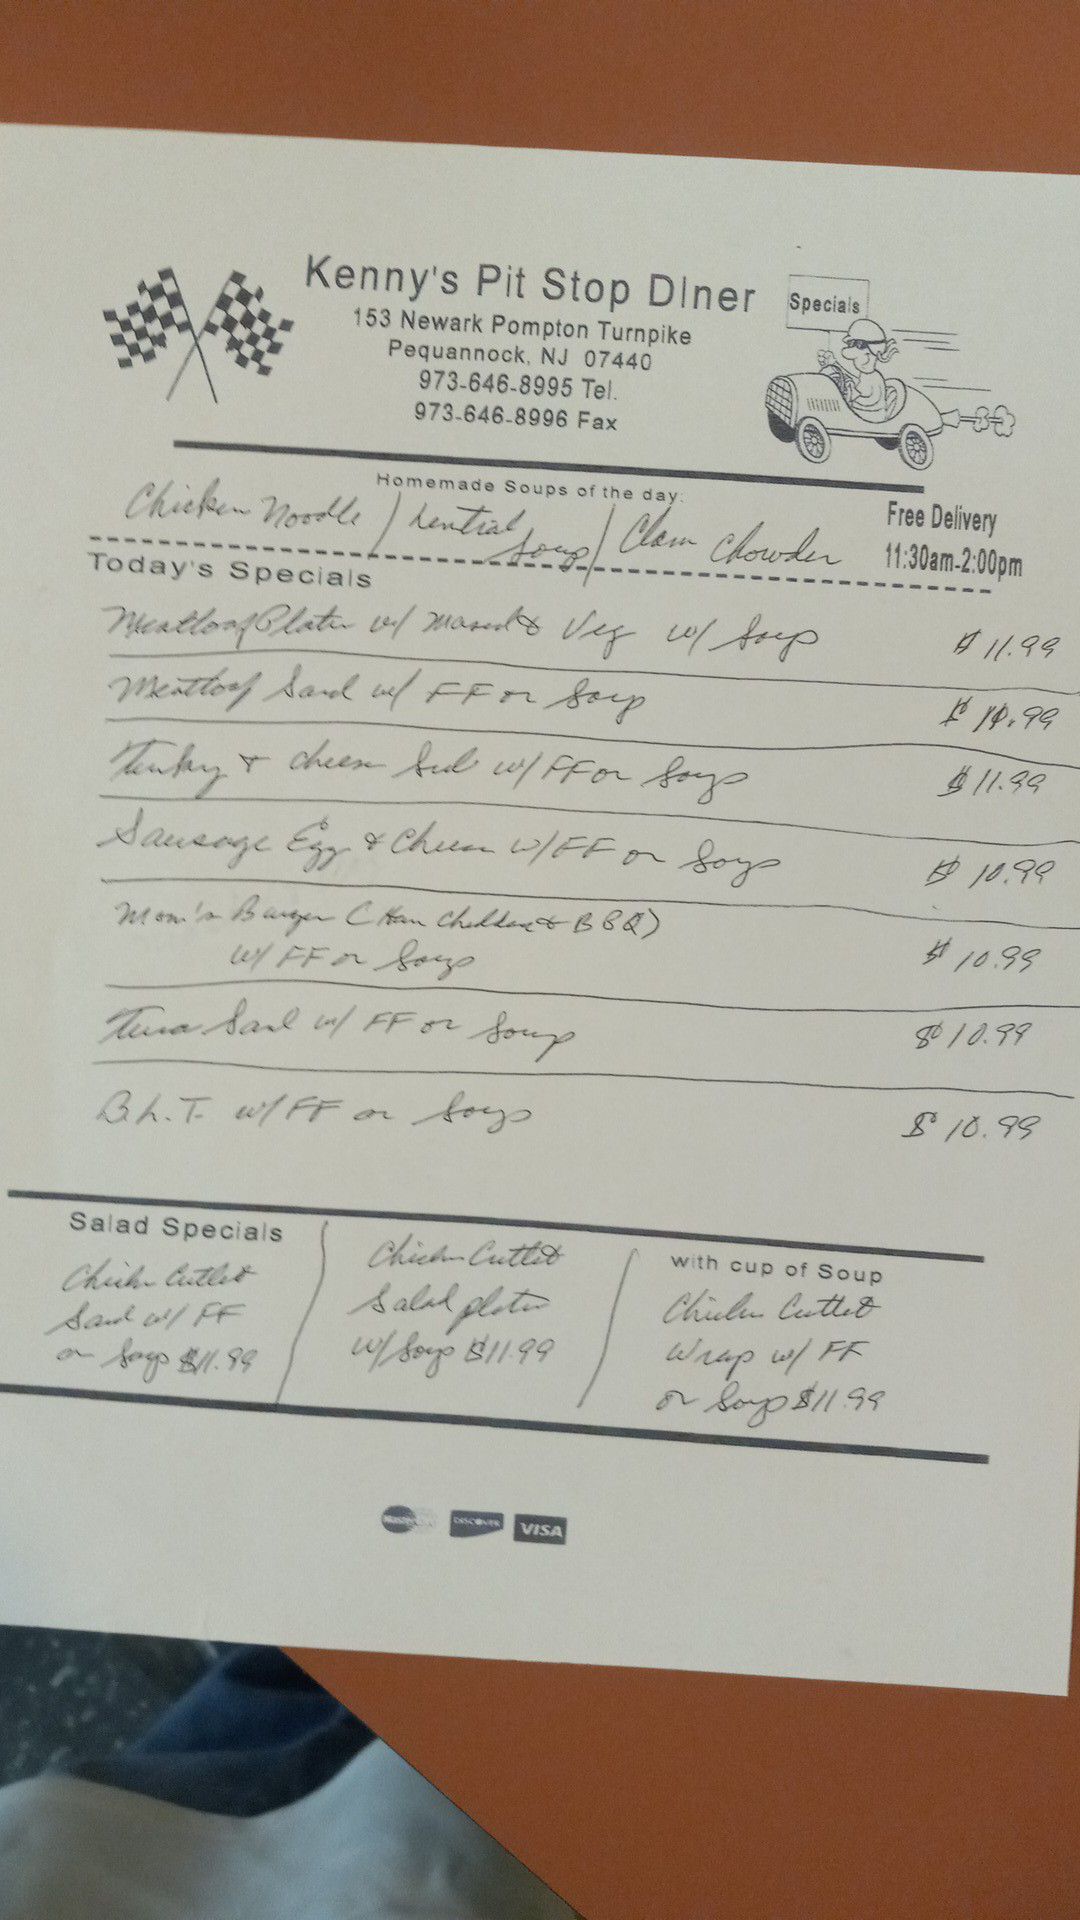 Kenny's Pit Stop DIner
Specials
153 Newark Pompton Turnpike
Pequannock, NJ 07440
973-646-8995 Tel.
973-646-8996 Fax
Homemade Soups of the day:
Chicken Noodle / Lential Soup / Clam Chowder
Free Delivery
11:30am-2:00pm
Today's Specials
Meatloaf Plater w/ Mased & Veg w/ Soup $11.99
Meatloaf Sand w/ FF or Soup $10.99
Turkey + Cheese Sub w/ FF or Soup $11.99
Sausage Egg & Cheese w/ FF or Soup $10.99
Mom's Burger (Ham Cheddar & BBQ)
w/ FF or Soup $10.99
Tuna Sand w/ FF or Soup $10.99
B.L.T. w/ FF or Soup $10.99
Salad Specials
Chicken Cutlet
Sand w/ FF
or Soup $11.99
Chicken Cutlet
Salad plater
w/ Soup $11.99
with cup of Soup
Chicken Cutlet
Wrap w/ FF
or Soup $11.99
MasterCard
DISCOVER
VISA